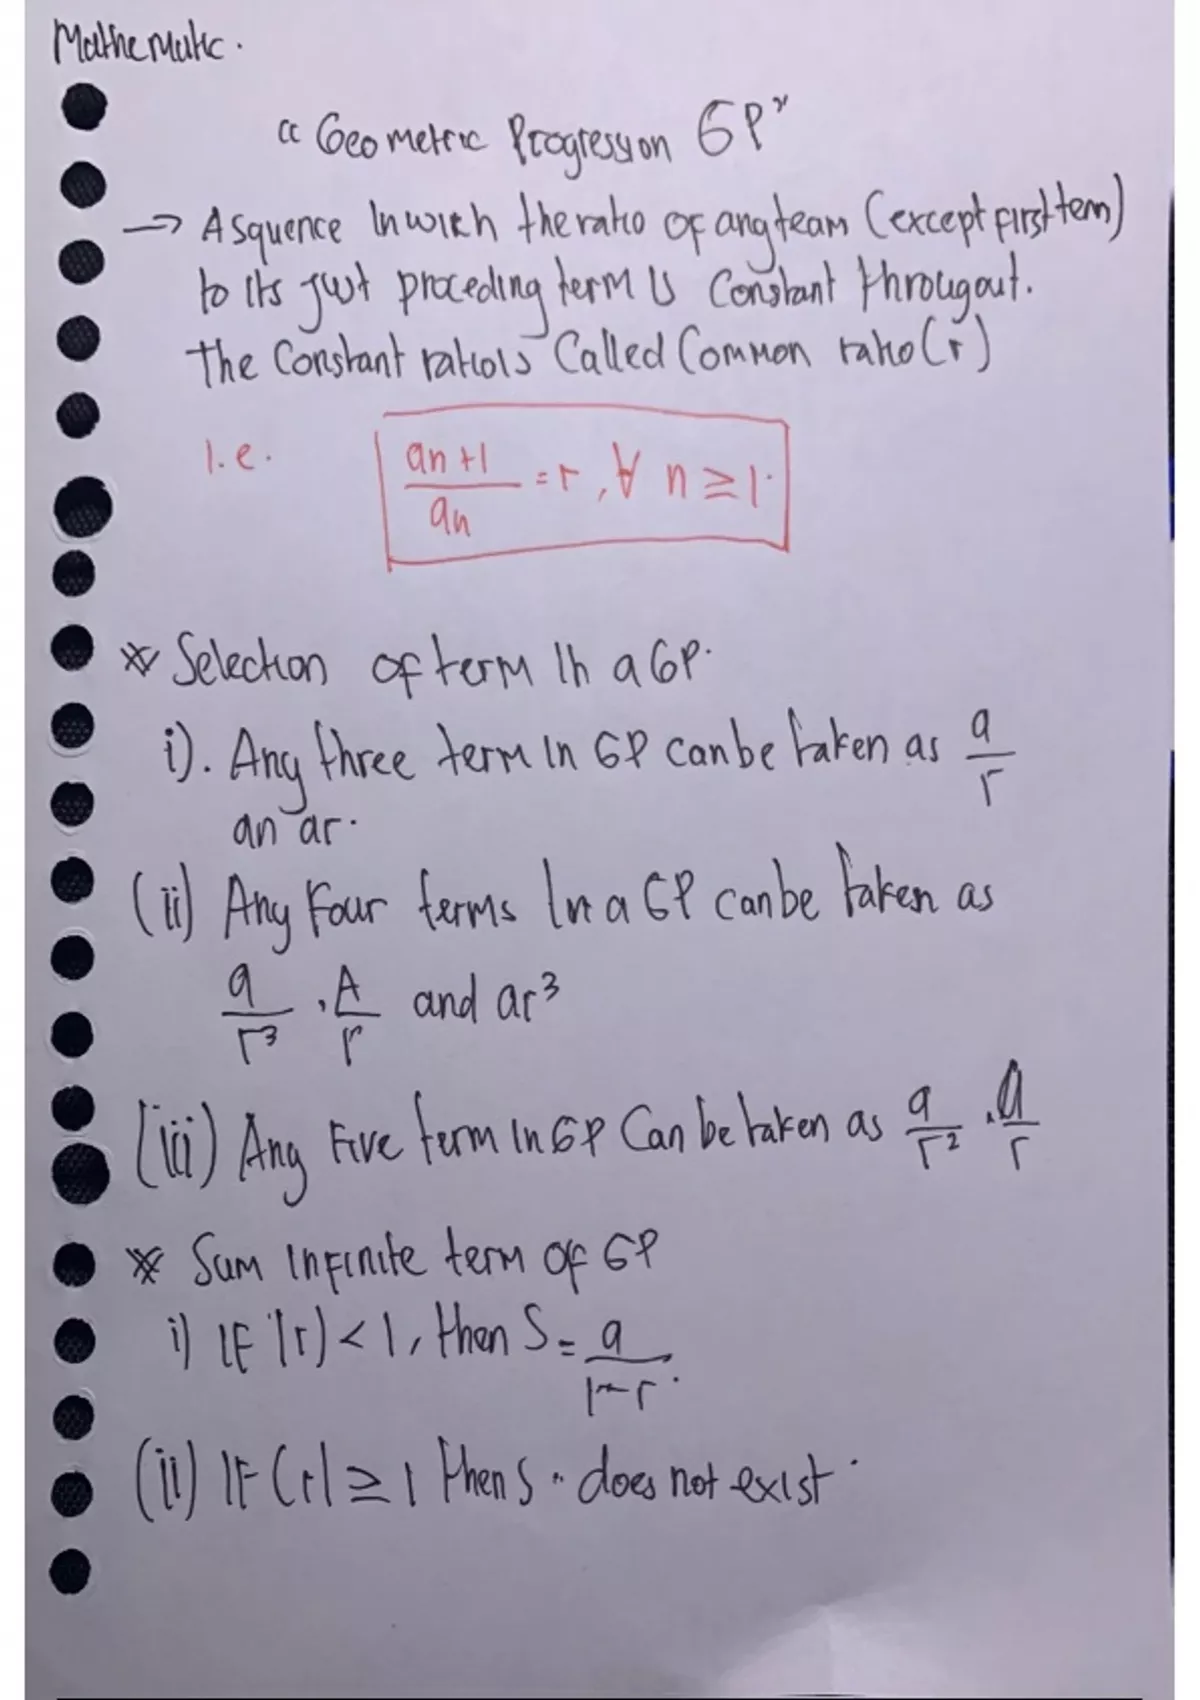 Mathematic.
"Geometric Progressyon GP"
→ A squence In wich the ratio of any team (except first tem)
to its just proceding term is Constant througout.
The Constant ratio is Called Common ratio (r)
i.e. an+1/an = r, ∀ n ≥ 1.
* Selection of term in a GP.
i). Any three term in GP can be taken as a/r
an ar.
(ii) Any Four terms In a GP can be taken as
a/r³ , A/r and ar³
(iii) Any Five term in GP Can be taken as a/r² , a/r
* Sum infinite term of GP
i) IF |r) < 1, then S = a/1-r.
(ii) IF (r| ≥ 1 then S " does not exist.